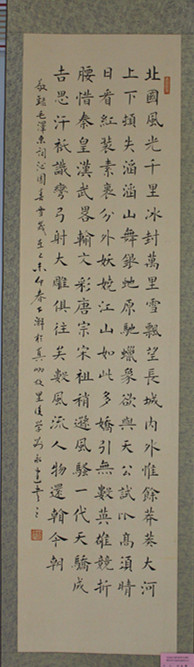 北國風光千里冰封萬里雪飄望長城內外惟餘莽莽大河
上下頓失滔滔山舞銀蛇原馳蠟象欲與天公試比高須晴
日看紅裝素裹分外妖嬈江山如此多嬌引無數英雄競折
腰惜秦皇漢武略輸文彩唐宗宋祖稍遜風騷一代天驕成
吉思汗祇識彎弓射大雕俱往矣數風流人物還看今朝
敬錄毛澤東詞沁園春雪歲在乙未仲春